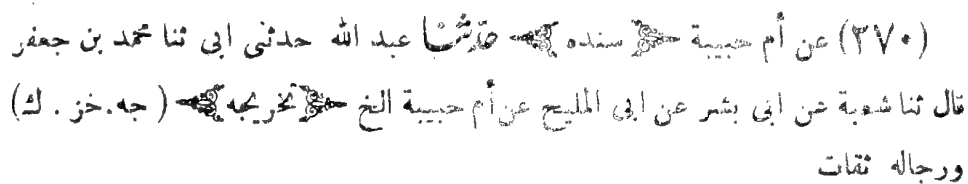 (٣٧٠) عن أم حبيبة ﴿ سنده ﴾ حدثنا عبد الله حدثنى ابى ثنا محمد بن جعفر
قال ثنا شعبة عن ابى بشر عن ابى المليح عن أم حبيبة الخ ﴿ تخريجه ﴾ ( جه . خز . ك )
ورجاله ثقات